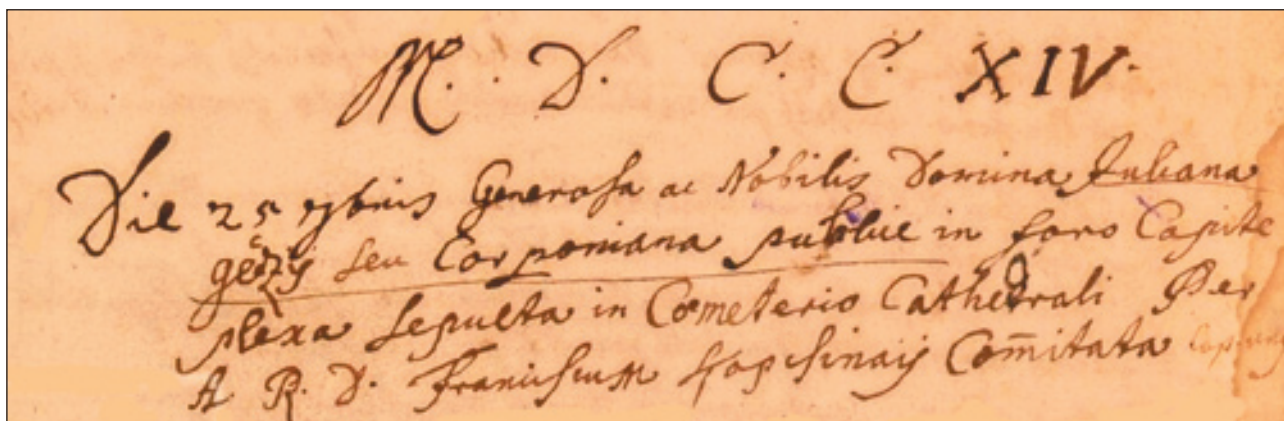 M. D. C. C. XIV.
Die 25 7bris Generosa ac Nobilis Domina Juliana
geczy seu Corponiana publice in foro Capite
plexa sepulta in Coemeterio Cathedrali Per
A. R. D. Franciscum Comitata